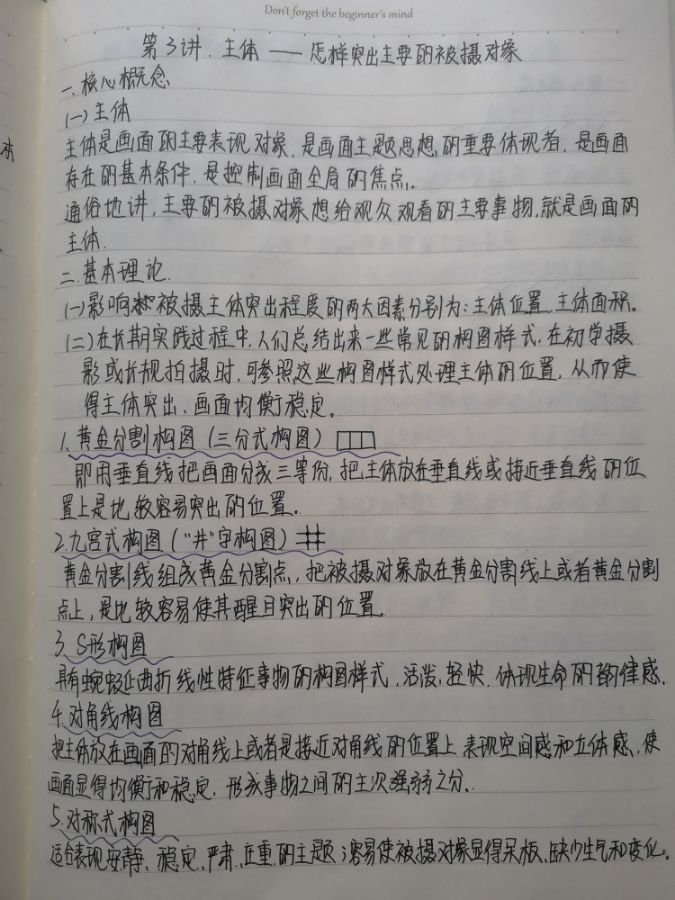 Don't forget the beginner's mind
第3讲.主体——怎样突出主要的被摄对象
一、核心概念
(一)主体
本
主体是画面的主要表现对象,是画面主题思想的重要体现者,是画面
存在的基本条件,是控制画面全局的焦点。
通俗地讲,主要的被摄对象想给观众观看的主要事物,就是画面的
主体.
二.基本理论.
(一)影响被摄主体突出程度的两大因素分别为:主体位置、主体面积。
(二)在长期实践过程中,人们总结出来一些常见的构图样式.在初学摄
影或长规拍摄时,可参照这些构图样式处理主体的位置,从而使
得主体突出、画面均衡稳定。
1.黄金分割构图(三分式构图)
即用垂直线把画面分成三等份,把主体放在垂直线或接近垂直线的位
置上是比较容易突出的位置。
2.九宫式构图("井"字构图)
黄金分割线组成黄金分割点,把被摄对象放在黄金分割线上或者黄金分割
点上,是比较容易使其醒目突出的位置.
3.S形构图
具有蜿蜒曲折线性特征事物的构图样式.活泼,轻快.体现生命的韵律感.
4.对角线构图
把主体放在画面的对角线上或者是接近对角线的位置上.表现空间感和立体感.使
画面显得均衡和稳定,形成事物之间的主次强弱之分.
5.对称式构图
适合表现安静、稳定、严肃、庄重的主题;容易使被摄对象显得呆板、缺少生气和变化。